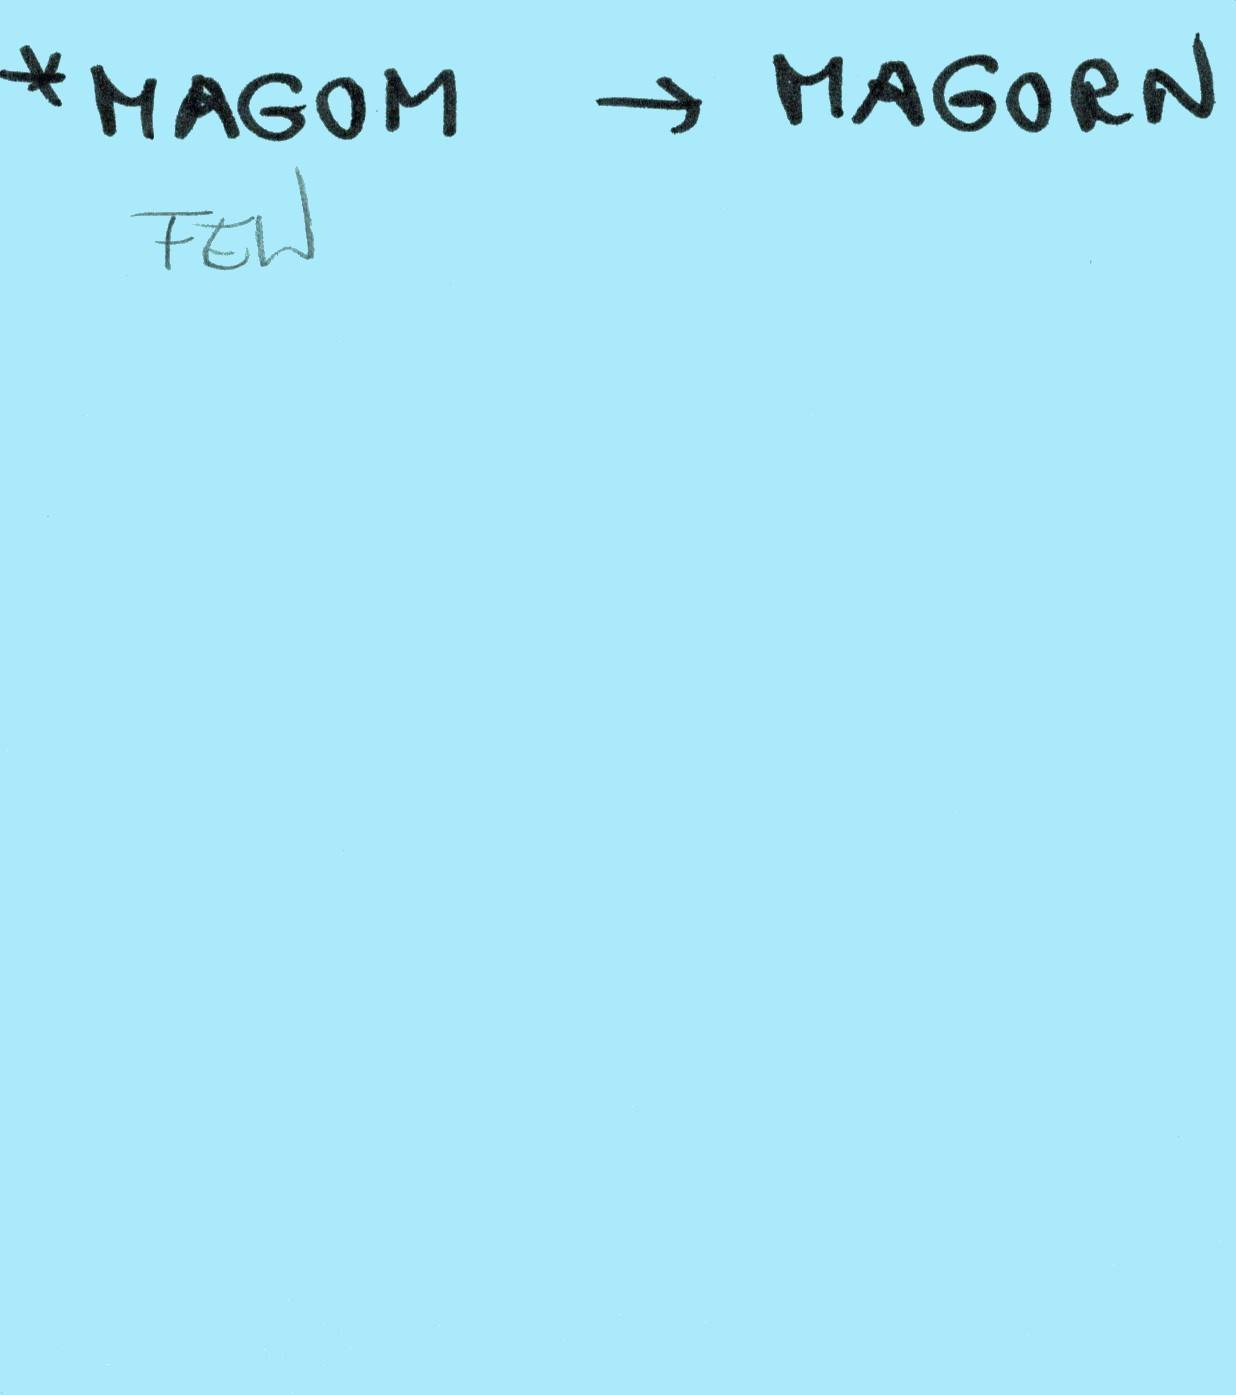 *MAGOM → MAGORN
FEW